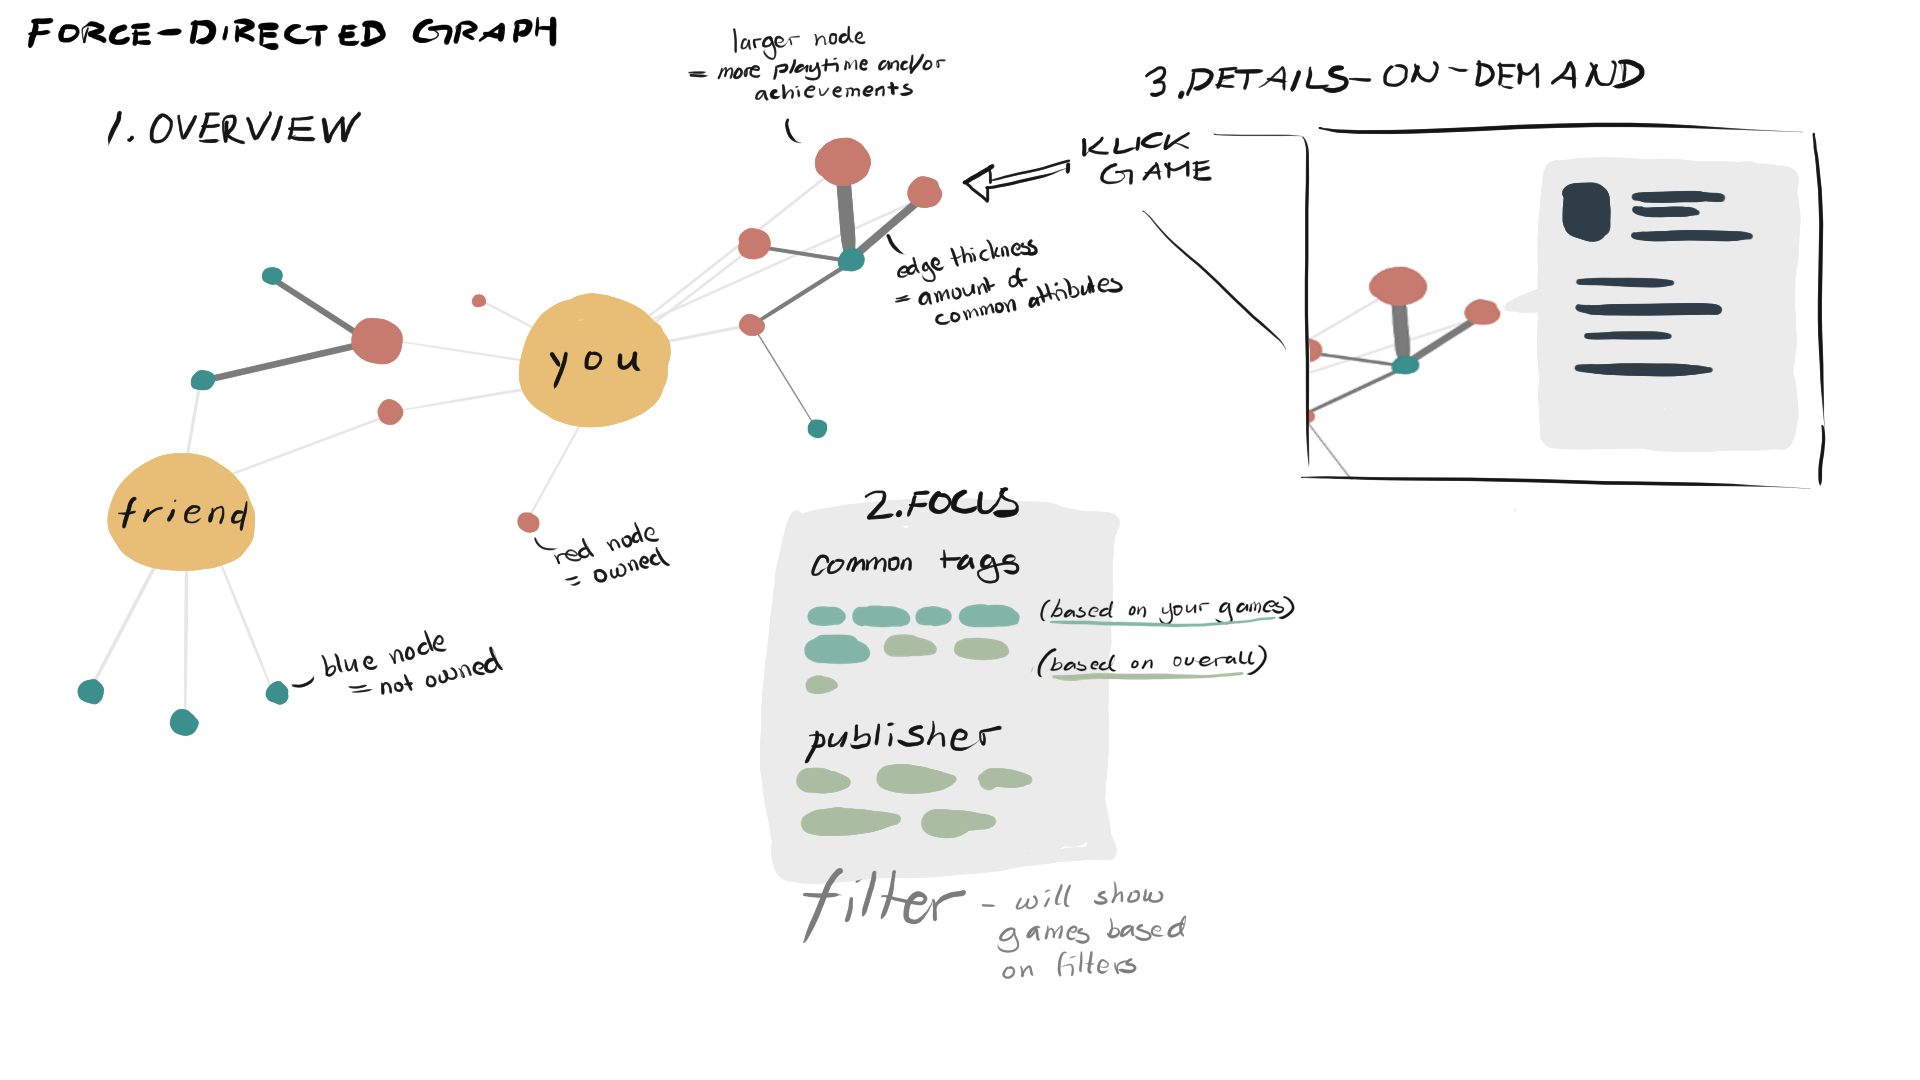 FORCE-DIRECTED GRAPH
1. OVERVIEW
larger node
= more playtime and/or
achievements
3. DETAILS-ON-DEMAND
KLICK
GAME
edge thickness
= amount of
common attributes
you
friend
red node
= owned
blue node
= not owned
2. FOCUS
common tags
(based on your games)
(based on overall)
publisher
filter - will show
games based
on filters